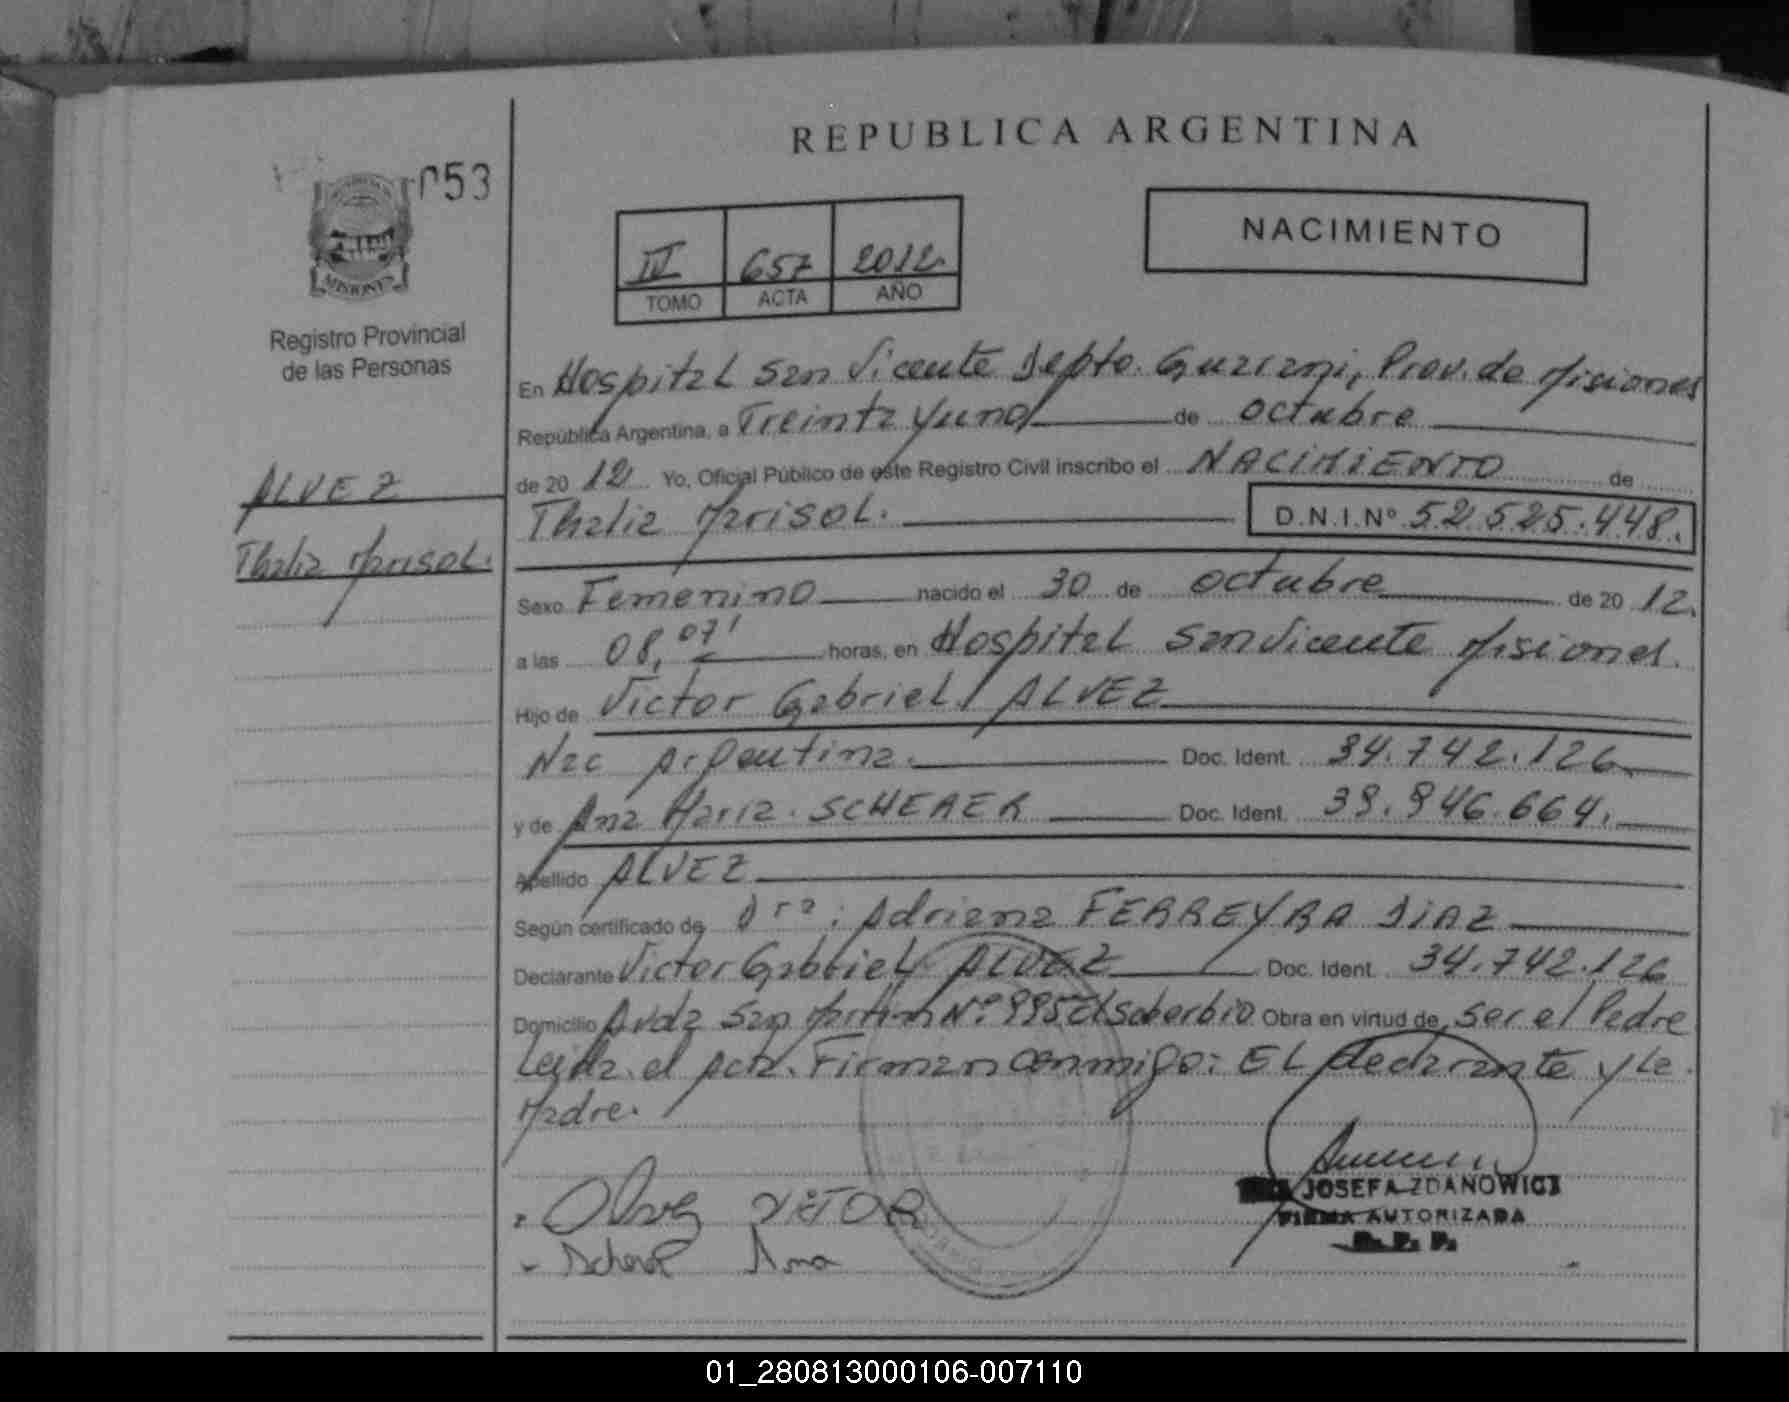 REPUBLICA ARGENTINA
053
MISIONES
Registro Provincial
de las Personas
NACIMIENTO
IV 657 2012
TOMO ACTA AÑO
En Hospital San Vicente Depto. Guarani, Prov. de Misiones
República Argentina, a Treinta y uno de octubre
de 2012 Yo, Oficial Público de este Registro Civil inscribo el NACIMIENTO de
Thalia Marisol. D.N.I.Nº 52.525.448.
ALVEZ
Thalia Marisol.
Sexo Femenino nacido el 30 de octubre de 2012.
a las 08,07' horas, en Hospital San Vicente Misiones.
Hijo de Victor Gabriel ALVEZ
Nac Argentina. Doc. Ident. 34.742.126
y de Ana Maria. SCHERER Doc. Ident. 39.946.664.
Apellido ALVEZ
Según certificado de Dra. Adriana FERREYRA DIAZ
Declarante Victor Gabriel ALVEZ Doc. Ident. 34.742.126
Domicilio Avda San Martin Nº 995 El Soberbio Obra en virtud de ser el Padre
Leida el Acta. Firman conmigo: EL declarante y la
Madre.
Alvez VICTOR
Ana
JOSEFA ZDANOWICZ
FIRMA AUTORIZADA
R. P. P.
01_280813000106-007110